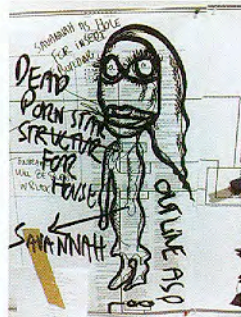 SAVANNAH AS HOLE
FOR
BUILDING
DEAD
PORN STAR
STRUCTURE
FOR
HOUSE
WILL BE
SAVANNAH
OUTLINE ASD